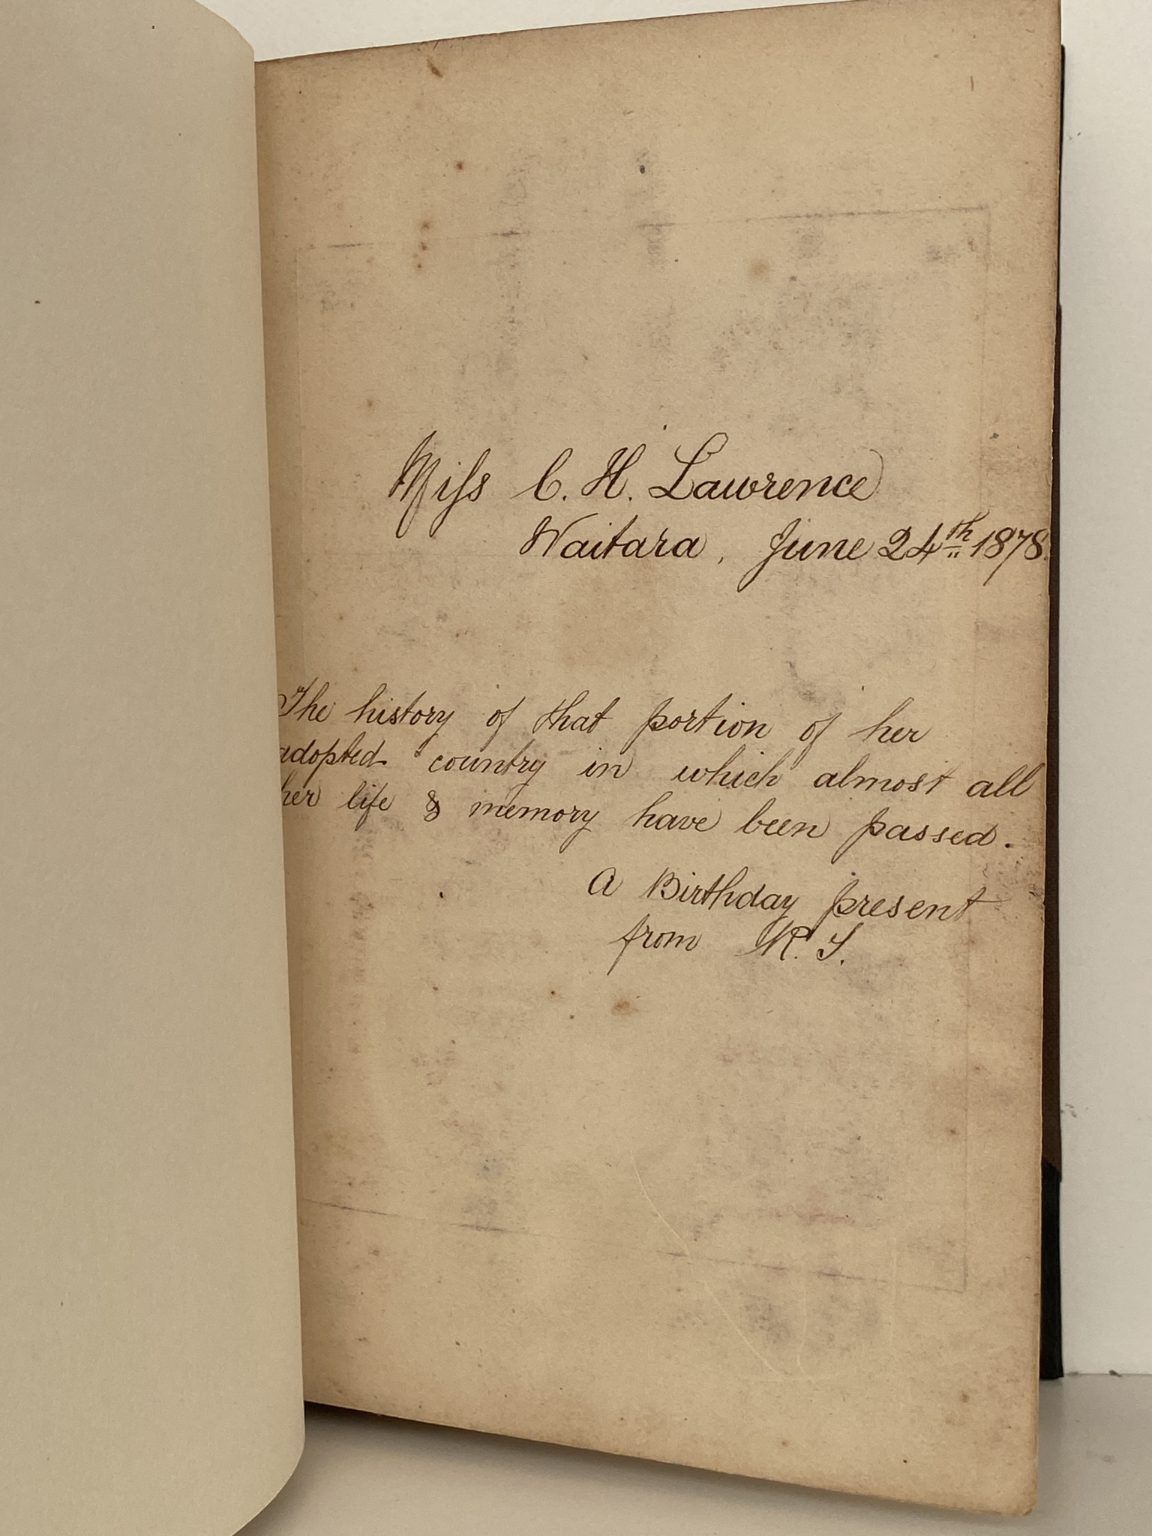 Miss C. H. Lawrence
Waitara, June 24th 1878.
The history of that portion of her
adopted country in which almost all
her life & memory have been passed.
A Birthday present
from